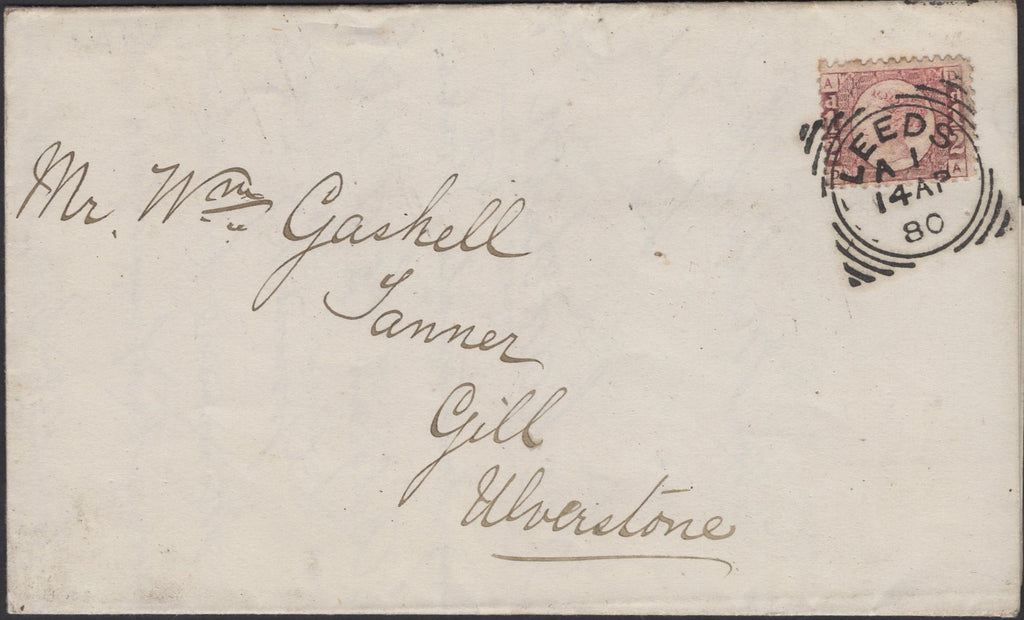 LEEDS
A 1
14 AP
80
Mr. Wm Gaskell
Tanner
Gill
Ulverstone